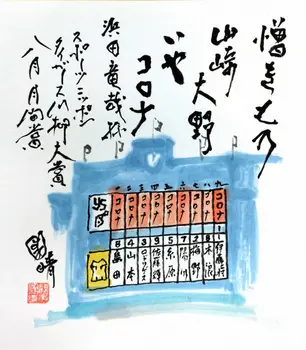 憎きもの
山崎
大野
いや
コロナ
浜田竜哉
スポーツニッポン
タイガース川柳大賞
八月月間賞
九 コロナ
八 コロナ
七 コロナ
六 コロナ
五 コロナ
四 コロナ
三 コロナ
二 コロナ
一 コロナ
1 伊藤将
木浪
2 梅野
3 陽川
5 糸原
9 佐藤輝
4 山本
8 島田